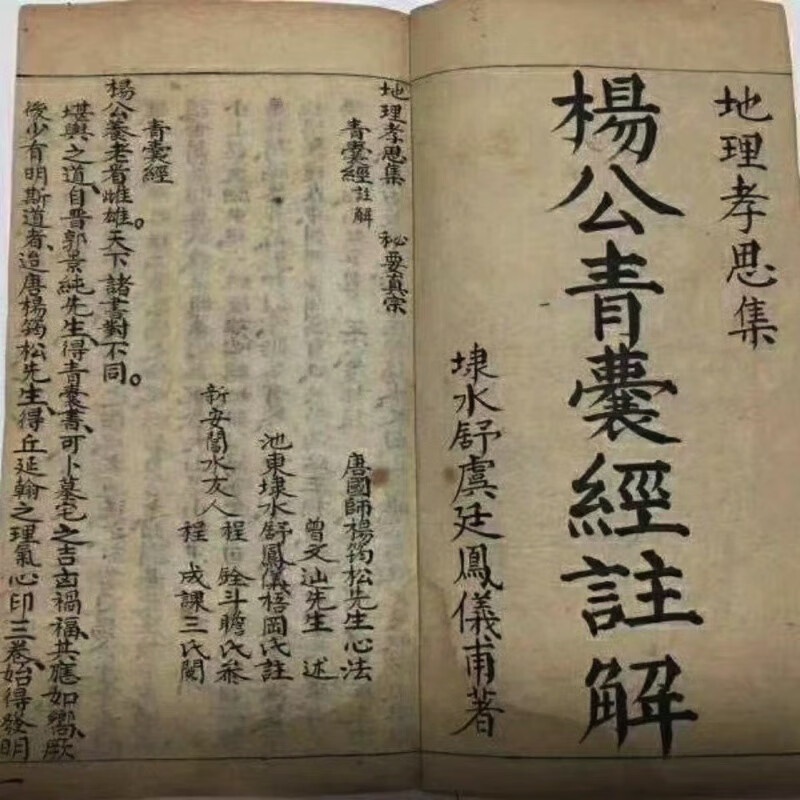 地理孝思集
楊公青囊經註解
埭水舒虞廷鳳儀甫著
地理孝思集 秘要真宗
青囊經註解
唐國師楊筠松先生心法
曾文辿先生 述
池東埭水舒鳳儀梧岡氏註
程 銓斗瞻氏叅
新安閶水友人
程 成課三氏閱
青囊經
楊公養老看雌雄。天下諸書對不同。
堪輿之道、自晋郭景純先生、得青囊書、可卜墓宅之吉凶禍福、其應如嚮、厥
後少有明斯道者、迨唐楊筠松先生、得丘延翰之理氣心印三卷、始得發明